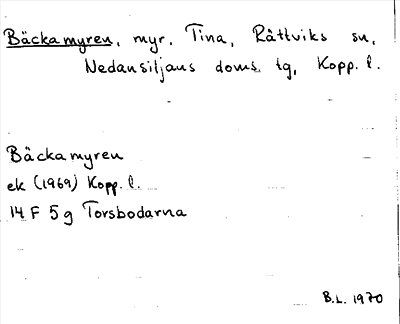 Bäckamyren, myr, Tina, Rättviks sn,
Nedansiljans doms. tg, Kopp. l.
Bäckamyren
ek (1969) Kopp. l.
14 F 5 g Torsbodarna
B.L. 1970